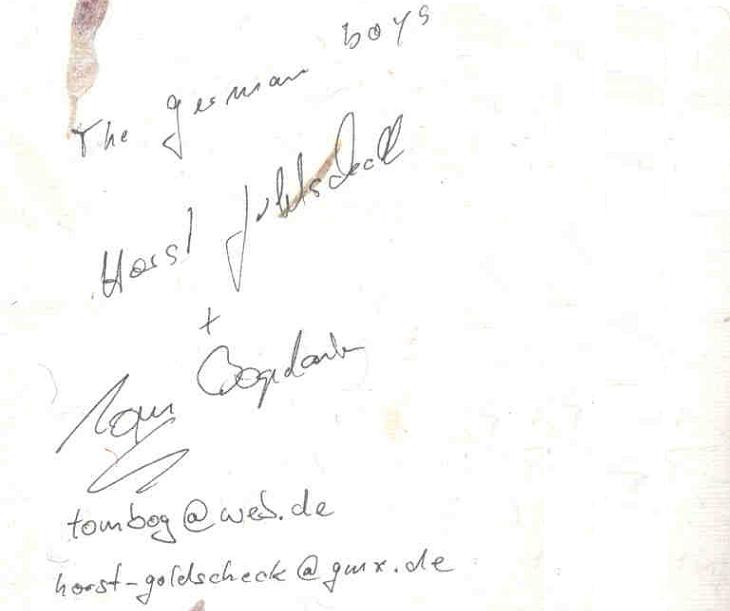 The german boys
Horst Goldscheck
+
Tom Bogdan
tombog@web.de
horst-goldscheck@gmx.de